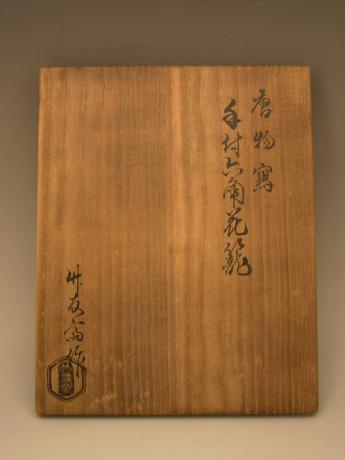 唐物寫
手付六角花籠
竹友斎作